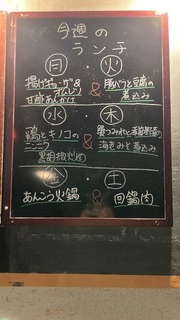 今週の
ランチ
月・火
揚げギョーザ&
オムレツ
甘酢あんかけ
豚バラと豆腐の
煮込み
水・木
鶏とキノコの
ニンニク
黒胡椒炒め
&
海老みそ煮込み
金・土
あんこう火鍋
&
回鍋肉